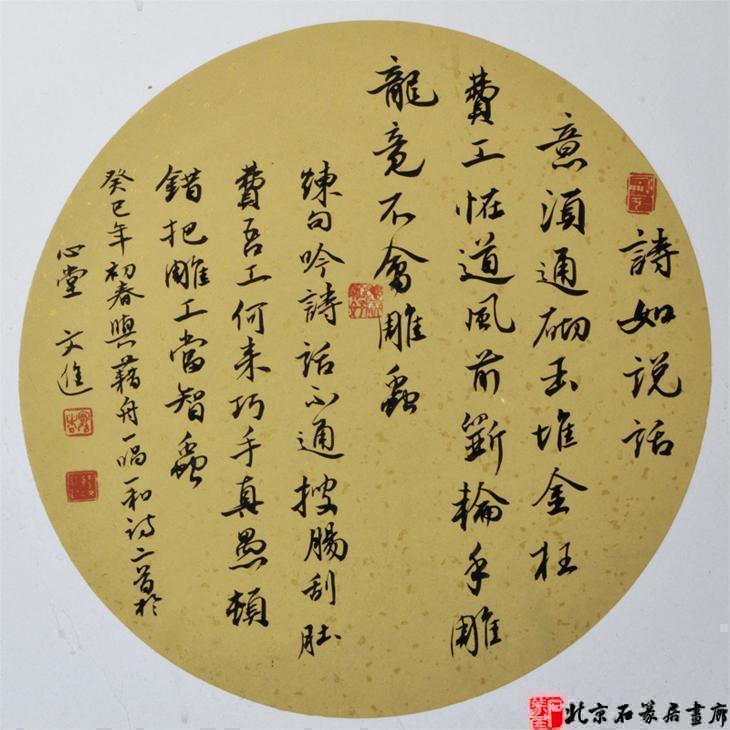 詩如说話
意須通砌玉堆金枉
費工怪道風前斲輪手雕
龍竟不會雕蟲
煉句吟詩話不通搜腸刮肚
費吾工何来巧手真愚頓
錯把雕工當智蟲
癸巳年初春與藕舟一唱一和诗二首於
心堂 文進
北京石篆居畫廊